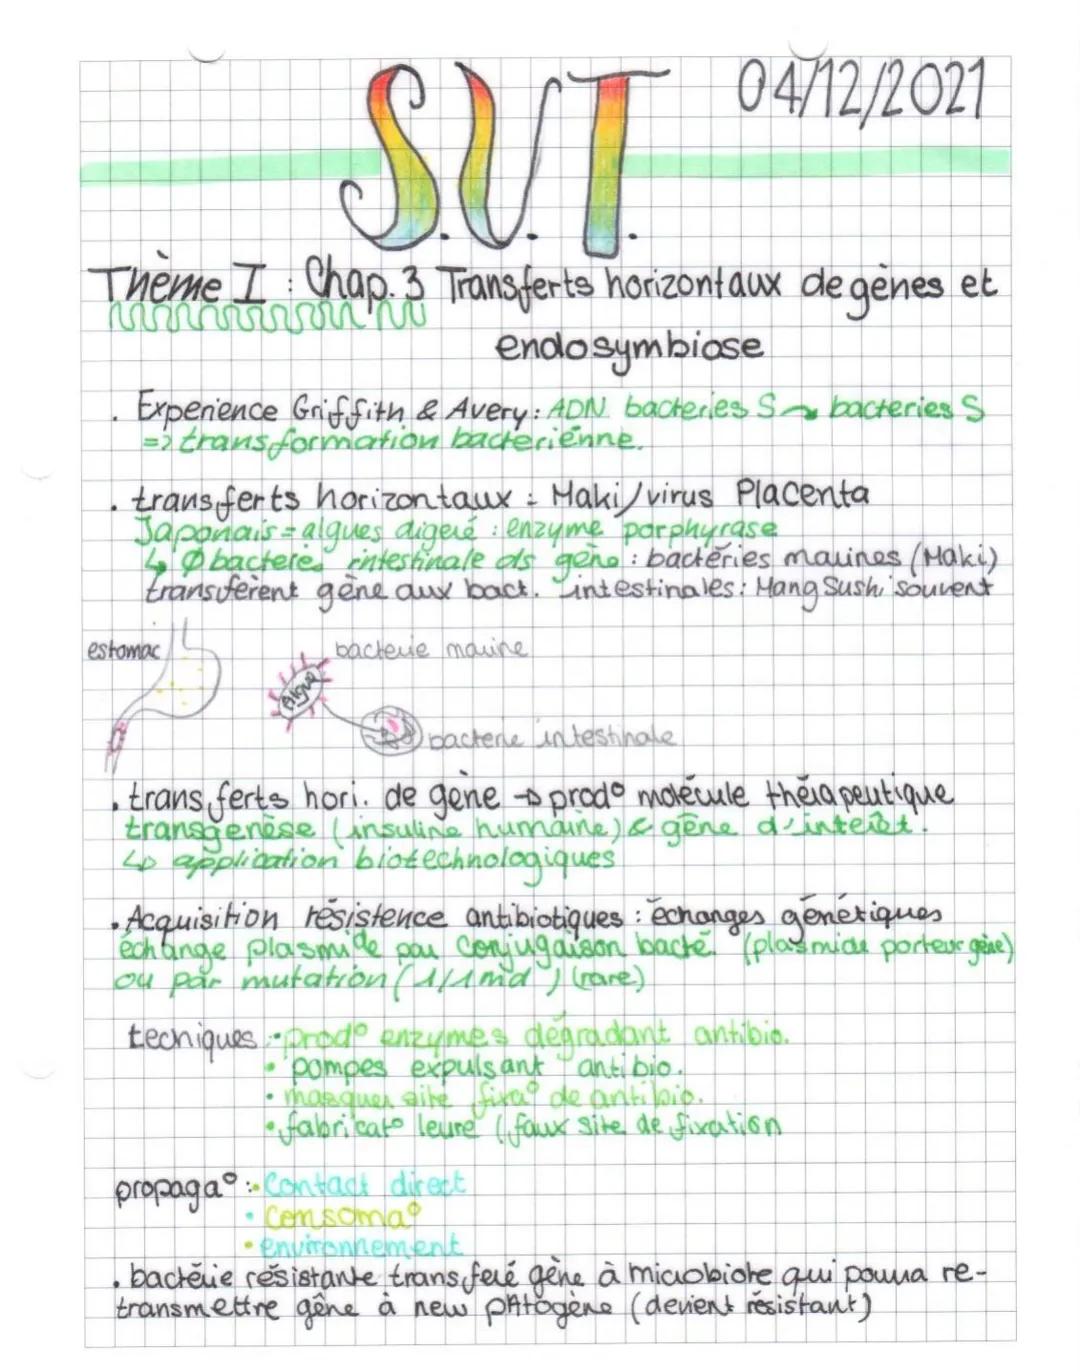 S.V.T. 04/12/2021
Thème I : Chap. 3 Transferts horizontaux de gènes et
endosymbiose
. Experience Griffith & Avery : ADN bacteries S → bacteries S
=> transformation bacterienne.
. transferts horizontaux : Maki/virus Placenta
Japonais = algues digéré : enzyme porphyrase
↳ Ø bacterie intestinale ds gène : bactéries marines (Maki)
transfèrent gène aux bact. intestinales : Mang Sushi souvent
estomac
bacterie marine
Algue
bacterie intestinale
. transferts hori. de gène → prod° molécule thérapeutique
transgenèse (insuline humaine) & gène d'interêt.
↳ application biotechnologiques
. Acquisition résistence antibiotiques : échanges génétiques
échange plasmide par conjugaison bacté. (plasmide porteur gène)
ou par mutation (1/1md) (rare)
tecniques : • prod° enzymes dégradant antibio.
• pompes expulsant antibio.
• masquer site fixa° de antibio.
• fabricat° leure (faux site de fixation
propaga° : • Contact direct
• Consoma°
• environnement
. bactérie résistante transferé gène à microbiote qui pourra re-
transmettre gène à new pAtogène (devient résistant)